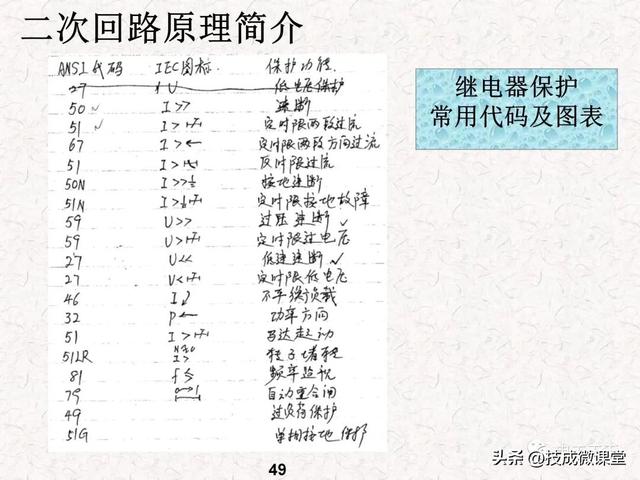 二次回路原理简介
ANSI代码 IEC图标 保护功能
27 U 低电压保护
50 I>> 速断
51 I> 定时限两段过流
67 I>← 定时限两段方向过流
51 I> 反时限过流
50N I>> 接地速断
51N I> 定时限接地故障
59 U>> 过压速断
59 U> 定时限过电压
27 U<< 低速速断
27 U< 定时限低电压
46 I 不平衡负载
32 P← 功率方向
51 I> 马达起动
51LR I> 转子堵转
81 f≶ 频率
79 自动重合闸
49 过负荷保护
51G 单相接地保护
继电器保护
常用代码及图表
49
头条 @技成微课堂